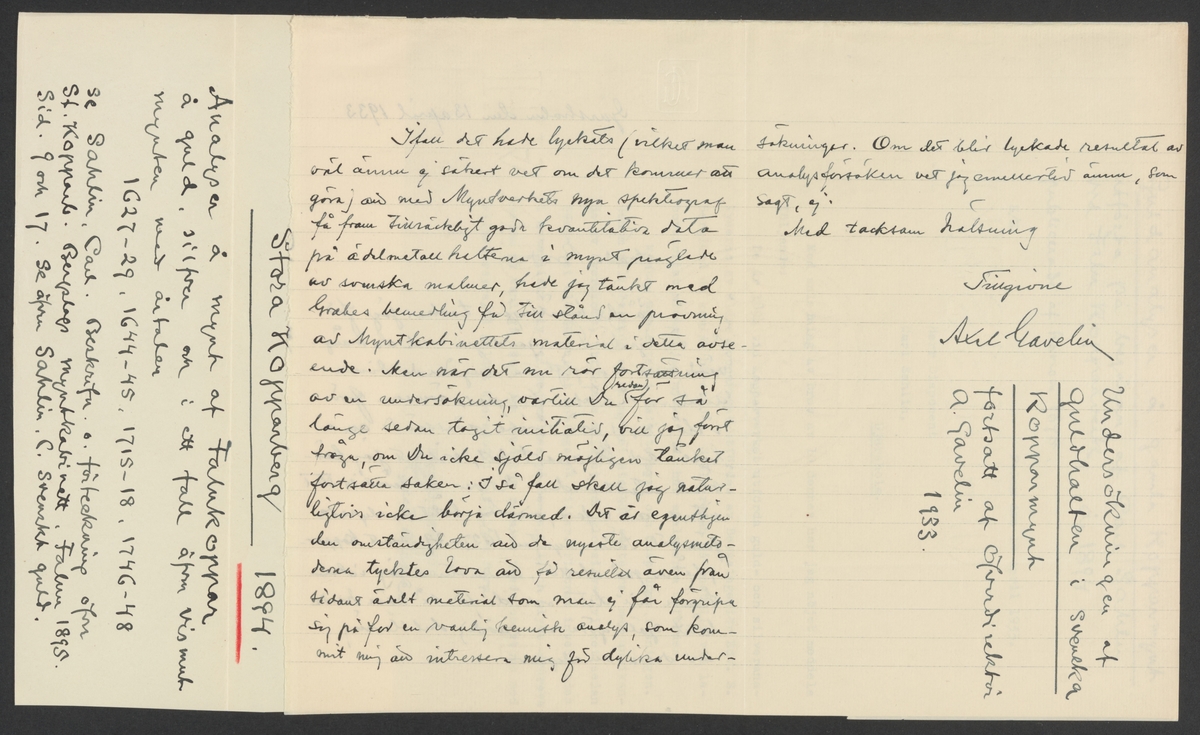 Stora Kopparberg 1894.
Analyser å mynt af Falukoppar
å guld, silfver och i ett fall äfven vismut
mynten med årtalen
1627-29, 1644-45, 1715-18, 1746-48
Se Sahlin, Carl. Beskrifn. o. förteckning öfver
St. Kopparb. Bergslags myntkabinett i Falun 1895.
Sid. 9 och 17. Se äfven Sahlin, C. Svenskt guld.
Ifall det hade lyckats (vilket man
väl ännu ej säkert vet om det kommer att
göra) att med Myntverkets nya spektrograf
få fram tillräckligt goda kvantitativa data
på ädelmetallhalterna i mynt präglade
av svenska malmer, hade jag tänkt med
Grabes bemedling få till stånd en prövning
av Myntkabinettets material i detta avse-
ende. Men när det nu rör fortsättning
av en undersökning, vartill Du redan för så
länge sedan tagit initiativ, vill jag först
fråga, om Du icke själv möjligen tänket
fortsätta saken; I så fall skall jag natur-
ligtvis icke börja därmed. Det är egentligen
den omständigheten att de nyaste analysmeto-
derna tycktes lova att få resultat även från
sådant ädelt material som man ej får förgripa
sig på för en vanlig kemisk analys, som kom-
mit mig att intressera mig för dylika under-
sökningar. Om det blir lyckade resultat av
analysförsöken vet jag emellertid ännu, som
sagt, ej.
Med tacksam hälsning
Tillgivne
Axel Gavelin
Undersökningen af
guldhalten i svenska
kopparmynt
fortsatt af Öfverdirektör
A. Gavelin
1933.